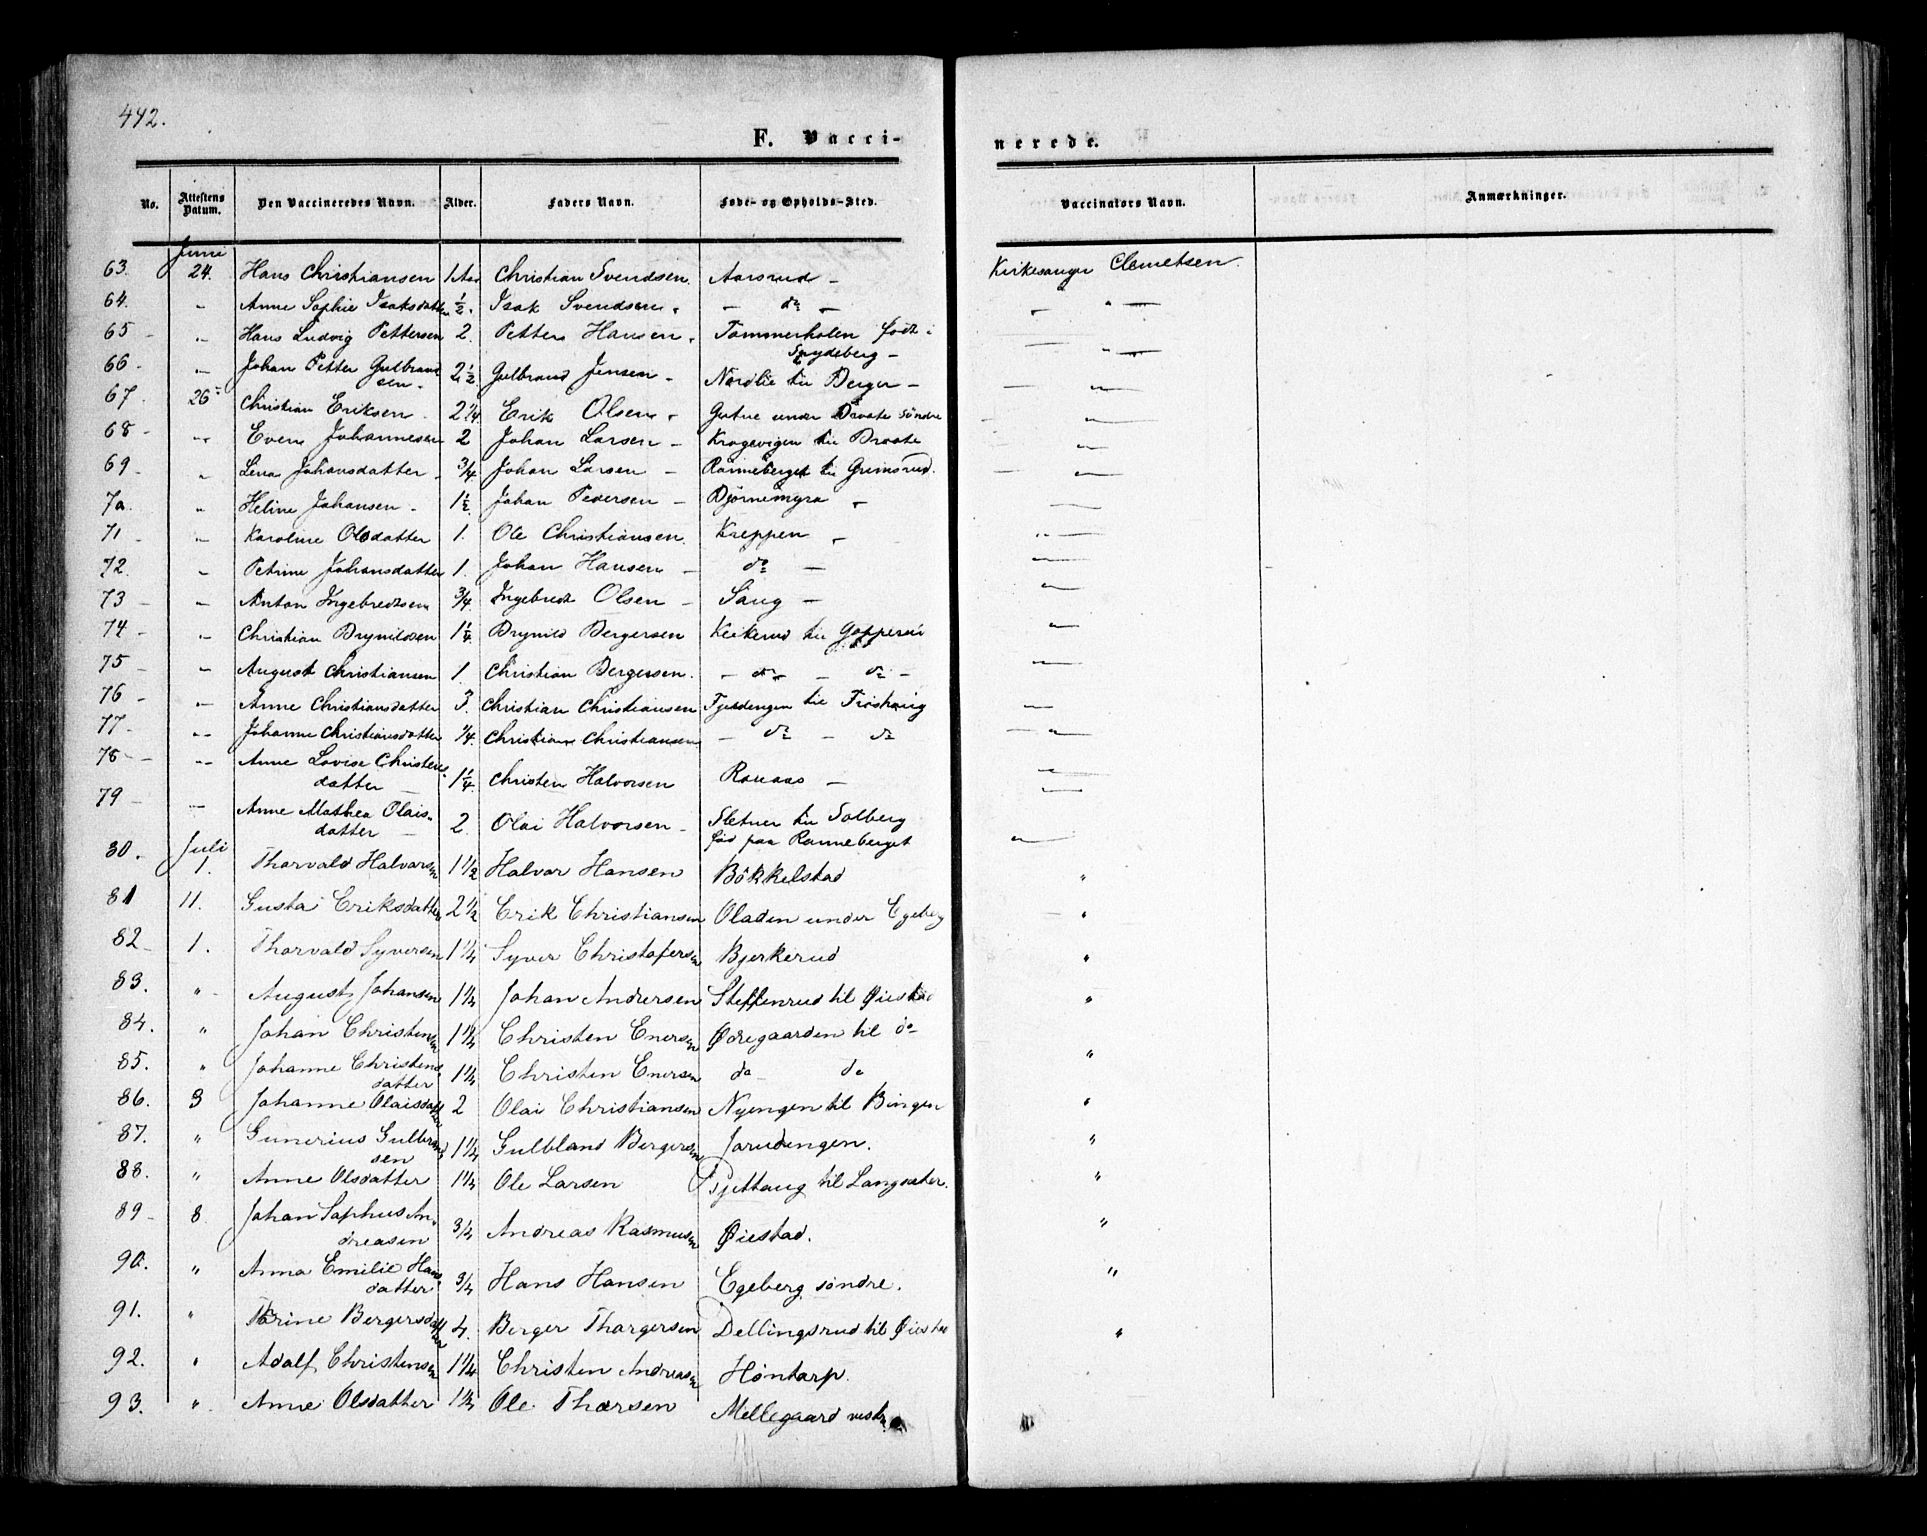 442.
F. Vacci-
nerede.
No. Attestens Datum. Den Vaccineredes Navn. Alder. Faders Navn. Føde- og Opholds-Sted. Vaccinators Navn. Anmærkninger.
Juni
63. 24. Hans Christiansen 1 Aar Christian Svendsen. Aarsrud – Kirkesanger Clemetsen.
64. " Anne Sophie Isaksdatter ½ Isak Svendsen – do – "
65 – " Hans Ludvig Pettersen 2. Petter Hansen Tømmerholen født i
Spydeberg – "
66 – " Johan Petter Gulbrand
sen 2½ Gulbrand Jensen – Nordlie til Berger – "
67. 26 Christian Eriksen 2¼ Erik Olsen Gutue under Davate söndre "
68 – " Even Johannesen 2 Johan Larsen – Kragevigen til Braate "
69 – " Lena Johansdatter ¾ Johan Larsen – Rönneberget til Grimsrud. "
70. " Heline Johansen 1½ Johan Pedersen – Björnemyra – "
71 – " Karoline Olsdatter 1. Ole Christiansen. Kreppen – "
72. " Petrine Johansdatter 1. Johan Hansen – do – "
73 – " Anton Ingebredtsen ¾ Ingebredt Olsen – Saug – "
74 – " Christian Brynildsen 1¼ Brynild Bergersen Keikerud til "
75 – " August Christiansen 1. Christian Bergersen. – do – do – "
76 – " Anne Christiansdatter 3. Christian Christiansen Fjeldengen til Fröshaug "
77 – " Johanne Christiansdatter ¼ Christian Christiansen – do – do "
78 – " Anne Lovise Christens
datter – 1¼ Christen Halvorsen Ronaas – "
79 – " Anne Mathea Olais-
datter – 2. Olai Halvorsen – Sletner til Solberg
föd paa Ronneberget "
80. Juli
1. Thorvald Halvorsen 1½ Halvor Hansen Bökkelstad "
81 11. Gusta Eriksdatter 2½ Erik Christiansen Oladen under Egeberg "
82 – 1. Thorvald Syversen 1¼ Syver Christofersen Bjerkerud "
83. " August Johansen 1¼ Johan Andersen Steffenrud til Øiestad "
84. " Johan Christensen 1¼ Christen Enersen Ødegaarden til do "
85. " Johanne Christens
datter 1¼ Christen Enersen do do
86. 3 Johanne Olaisdatter 2 Olai Christiansen Nyengen til Bingen "
87. " Gunerius Gulbrand
sen 1¼ Gulbland Bergersen Jarudengen. "
88. " Anne Olsdatter 1¼ Ole Larsen til Langsæter. "
89 – 8 Johan Sophus An-
dreasen ¾ Andreas Rasmusen Øiestad. "
90. " Anna Emilie Hans
datter ¾ Hans Hansen Egeberg søndre. "
91. " Thrine Bergersdatter 4. Berger Thorgersen Dellingsrud til Øiestad "
92. " Adolf Christensen 1¼ Christen Andreasen Høntorp.
93. " Anne Olsdatter 1¼ Ole Thorsen Mellegaard vestre